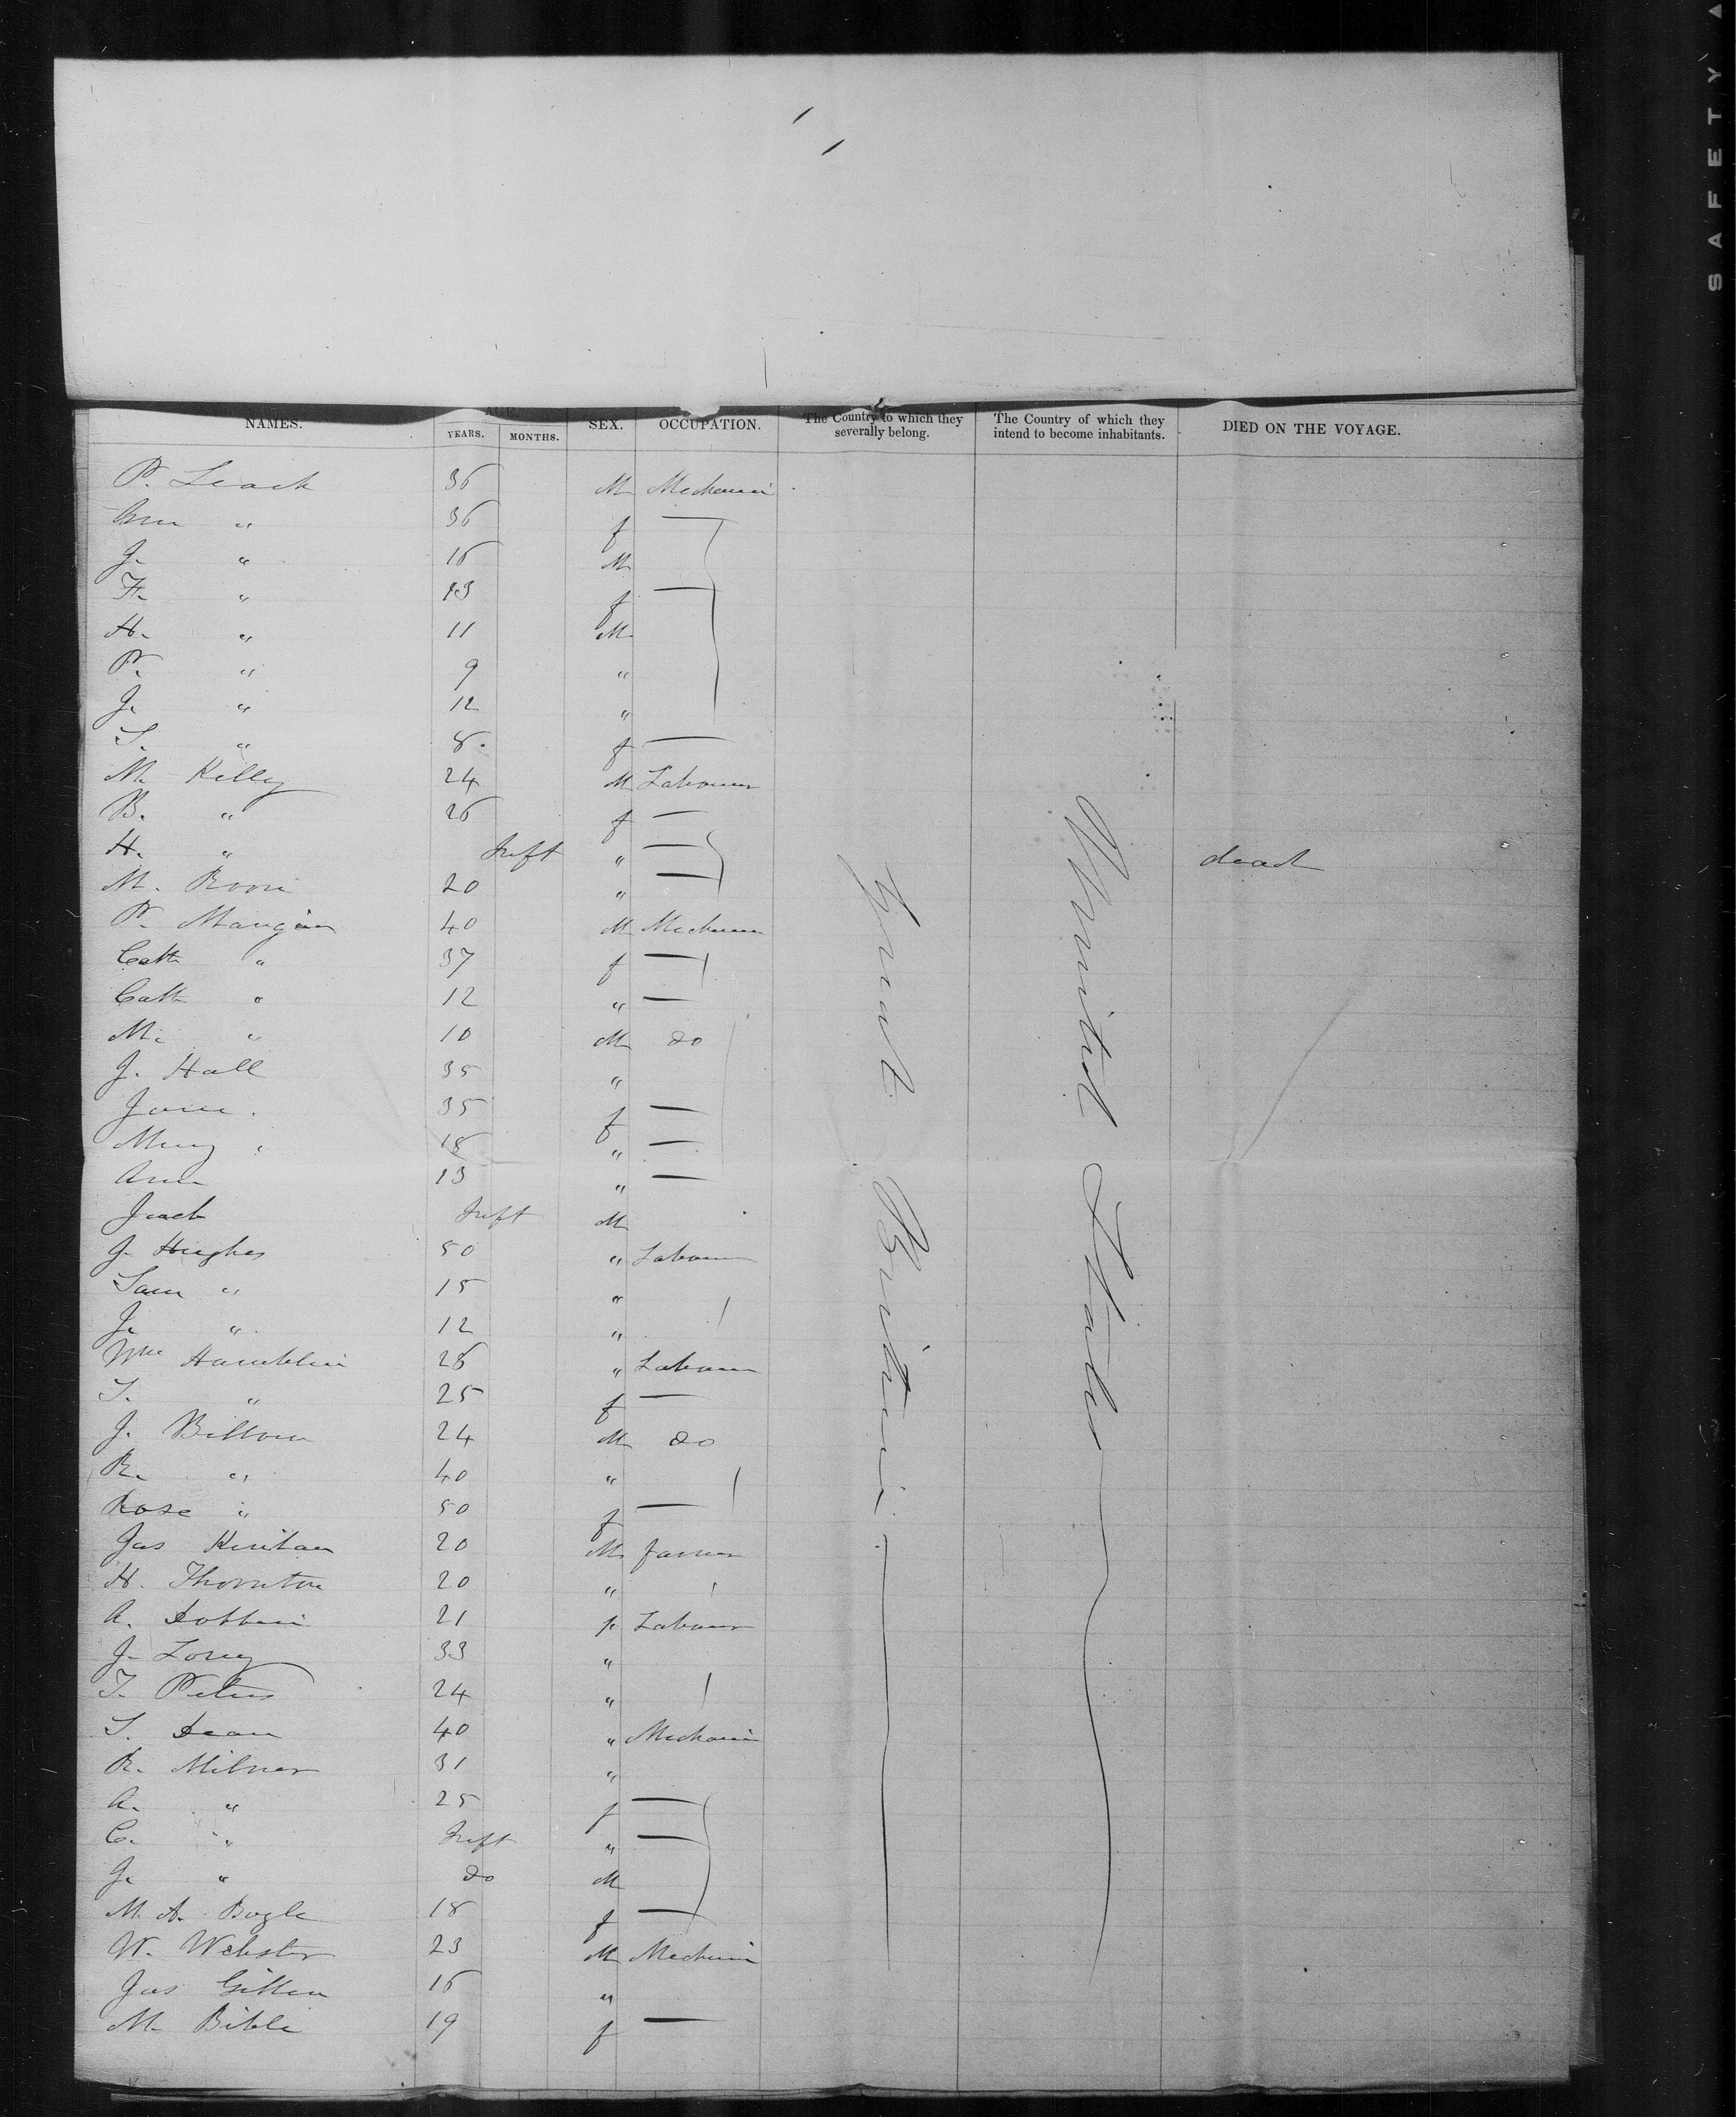 SAFETY
NAMES. AGE. YEARS. MONTHS. SEX. OCCUPATION. The Country to which they severally belong. The Country of which they intend to become inhabitants. DIED ON THE VOYAGE.
P. Leach 36 M Mechanic
Ann " 36 f —
J. " 16 M
F. " 13 f —
H. " 11 M
P. " 9 "
J. " 12 "
S. " 8 f —
M Kelly 24 M Labourer
B. " 26 f —
H. " Inft " — dead
M. 20 " —
P. Mangan 40 M Mechanic
Cath " 37 f —
Cath " 12 " —
M. " 10 M do
J. Hall 35 "
Jane " 35 f —
Mary " 18 " —
Ann 13 " —
Inft M
J. Hughes 50 " Labourer
Sam " 15 "
J. " 12 "
Wm Hamblin 28 " Labourer
S. " 25 f —
J. 24 M do
R. " 40 "
Rose " 50 f —
Jas 20 M farmer
H. Thornton 20 "
A. 21 Labourer
J. 33 "
T. Peters 24 "
S. Dean 40 " Mechanic
R. Milner 31 "
A. " 25 f —
C. " Inft " —
J. " do M
M. A. Bogle 18 f —
W. Webster 23 M Mechanic
Jas 16 "
M. Bible 19 f —
Great Britain
United States